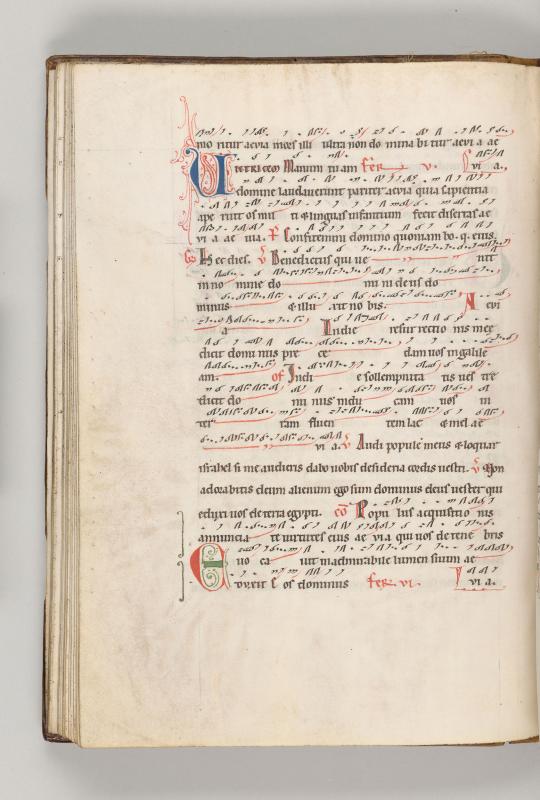 mo ritur aevia mors illi ultra non do mina bi tur aevi a ae
VICTRICEM Manum tu am fer v. vi a.
domine laudaverunt pariter aevia quia sapientia
ape ruit os mu ti & linguas infantium fecit disertas ae
vi a ae uia. Confitemini domino quoniam bo. q. eius.
Hec dies. v Benedictus qui ve nit
in no mine do mi ni deus do
minus & illu xit no bis. A evi
a In die resur rectio nis mee
dicit domi nus pre ce dam vos in galile
am. of In di e sollempnita tis ves tre
dicit do mi nus indu cam vos in
ter ram fluen tem lac & mel ae
vi a. v Audi popule meus & loquar
israhel si me audieris dabo vobis desideria cordis vestri. v Non
adorabitis deum alienum ego sum dominus deus vester qui
eduxi vos de terra egypti. co Popu lus acquisitio nis
annuncia te virtutes eius ae vi a qui vos de tene bris
vo ca vit in admirabile lumen suum ae
Eduxit os dominus fer vi. vi a.